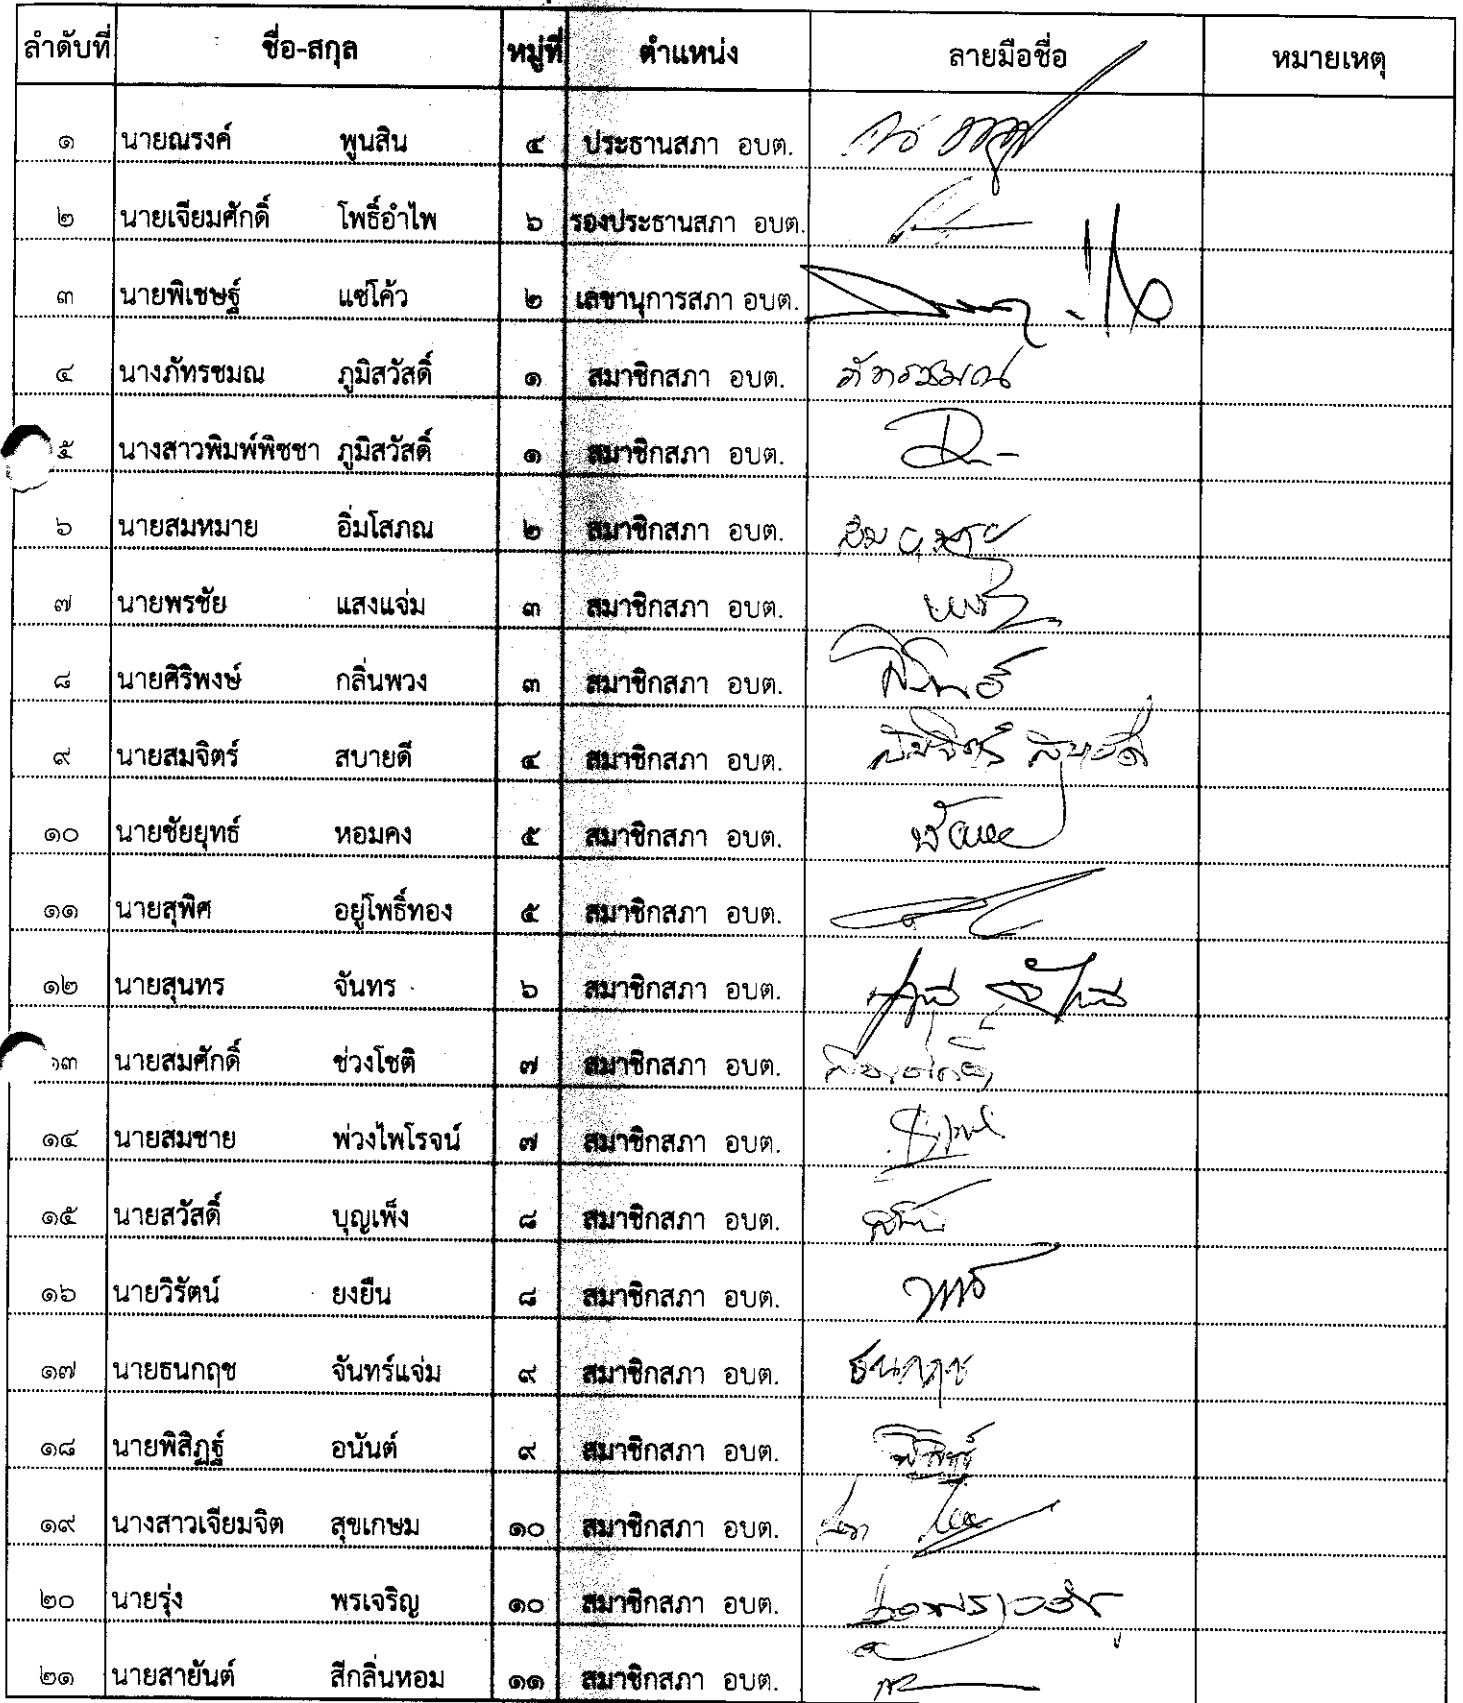 ลำดับที่ ชื่อ-สกุล หมู่ที่ ตำแหน่ง ลายมือชื่อ หมายเหตุ
๑ นายณรงค์ พูนสิน ๔ ประธานสภา อบต.
๒ นายเจียมศักดิ์ โพธิ์อำไพ ๖ รองประธานสภา อบต.
๓ นายพิเชษฐ์ แซ่โค้ว ๒ เลขานุการสภา อบต.
๔ นางภัทรชมณ ภูมิสวัสดิ์ ๑ สมาชิกสภา อบต. ภัทรชมณ
๕ นางสาวพิมพ์พิชชา ภูมิสวัสดิ์ ๑ สมาชิกสภา อบต.
๖ นายสมหมาย อิ่มโสภณ ๒ สมาชิกสภา อบต. สมหมาย
๗ นายพรชัย แสงแจ่ม ๓ สมาชิกสภา อบต.
๘ นายศิริพงษ์ กลิ่นพวง ๓ สมาชิกสภา อบต.
๙ นายสมจิตร์ สบายดี ๔ สมาชิกสภา อบต. สมจิตร์ สบายดี
๑๐ นายชัยยุทธ์ หอมคง ๕ สมาชิกสภา อบต.
๑๑ นายสุพิศ อยู่โพธิ์ทอง ๕ สมาชิกสภา อบต.
๑๒ นายสุนทร จันทร ๖ สมาชิกสภา อบต.
๑๓ นายสมศักดิ์ ช่วงโชติ ๗ สมาชิกสภา อบต. สมศักดิ์
๑๔ นายสมชาย พ่วงไพโรจน์ ๗ สมาชิกสภา อบต.
๑๕ นายสวัสดิ์ บุญเพ็ง ๘ สมาชิกสภา อบต.
๑๖ นายวิรัตน์ ยงยืน ๘ สมาชิกสภา อบต.
๑๗ นายธนกฤช จันทร์แจ่ม ๙ สมาชิกสภา อบต. ธนกฤช
๑๘ นายพิสิฏฐ์ อนันต์ ๙ สมาชิกสภา อบต. พิสิฏฐ์
๑๙ นางสาวเจียมจิต สุขเกษม ๑๐ สมาชิกสภา อบต.
๒๐ นายรุ่ง พรเจริญ ๑๐ สมาชิกสภา อบต.
๒๑ นายสายันต์ สีกลิ่นหอม ๑๑ สมาชิกสภา อบต.